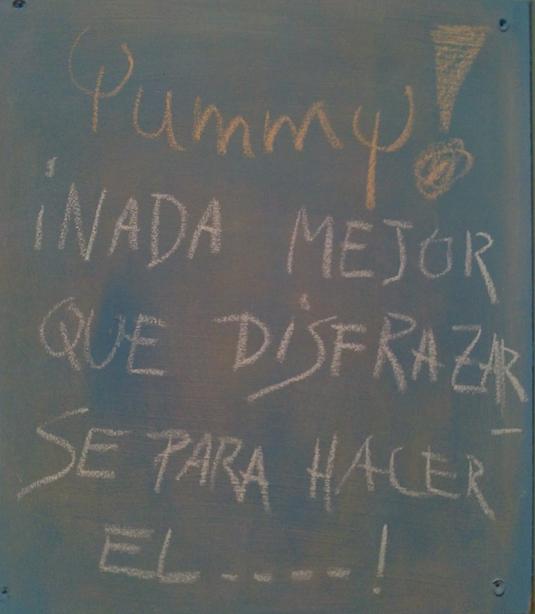 Yummy!
¡NADA MEJOR
QUE DISFRAZAR-
SE PARA HACER
EL ----!